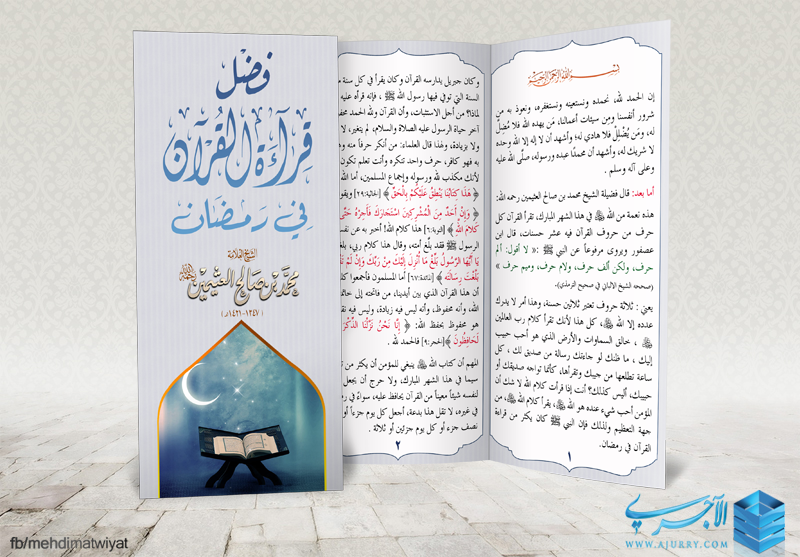 فضل
قراءة القرآن
في رمضان
الشيخ العلامة
محمد بن صالح العثيمين
(١٣٤٧-١٤٢١هـ)
إن الحمد لله، نحمده ونستعينه ونستغفره، ونعوذ به من
شرور أنفسنا ومن سيئات أعمالنا، مَن يهده الله فلا مُضِلَّ
له، ومَن يُضْلِلْ فلا هادي له؛ وأشهد أن لا إله إلا الله وحده
لا شريك له، وأشهد أن محمدًا عبده ورسوله، صلَّى الله عليه
وعلى آله وسلم .
أما بعد: قال فضيلة الشيخ محمد بن صالح العثيمين رحمه الله:
هذه نعمة من الله ﷻ في هذا الشهر المبارك، تقرأ القرآن كل
حرف من حروف القرآن فيه عشر حسنات، قال ابن
عصفور ويروى مرفوعاً عن النبي ﷺ :« لا أقول: ألم
حرف، ولكن ألف حرف، ولام حرف، وميم حرف »
(صححه الشيخ الألباني في صحيح الترمذي).
يعني : ثلاثة حروف تعتبر ثلاثين حسنة، وهذا أمر لا يدرك
عدده إلا الله ﷻ، كل هذا لأنك تقرأ كلام رب العالمين
ﷻ ، خالق السماوات والأرض الذي هو أحب حبيب
إليك ، ما ظنك لو جاءتك رسالة من صديق لك ، كل
ساعة تطلعها من جيبك وتقرأها، كأنما تواجه صديقك أو
حبيبك، أليس كذلك؟ أنت إذا قرأت كلام الله لا شك أن
المؤمن أحب شيء عنده هو الله ﷻ، يقرأ كلام الله ﷻ، من
جهة التعظيم ولذلك فإن النبي ﷺ كان يكثر من قراءة
القرآن في رمضان.
١
وكان جبريل يدارسه القرآن وكان يقرأ في كل سنة
السنة التي توفي فيها رسول الله ﷺ ، فإنه قرأه عليه
لماذا؟ من أجل الاستثبات، وأن القرآن ولله الحمد
آخر حياة الرسول عليه الصلاة والسلام، لم يتغير، لا
ولا بزيادة، ولهذا قال العلماء: من أنكر حرفاً منه
به فهو كافر، حرف واحد تنكره وأنت تعلم تكون
لأنك مكذب لله ورسوله وإجماع المسلمين، أما الله
﴿ هَذَا كِتَابُنَا يَنْطِقُ عَلَيْكُمْ بِالْحَقِّ ﴾ [الجاثية:٢٩]
﴿ وَإِنْ أَحَدٌ مِنَ الْمُشْرِكِينَ اسْتَجَارَكَ فَأَجِرْهُ حَتَّى
كَلَامَ اللَّهِ ﴾ [التوبة:٦] هذا كلام الله! أخبر به عن نفسه
الرسول ﷺ فقد بلَّغ أمته، وقال هذا كلام ربي،
يَا أَيُّهَا الرَّسُولُ بَلِّغْ مَا أُنْزِلَ إِلَيْكَ مِنْ رَبِّكَ وَإِنْ لَمْ
بَلَّغْتَ رِسَالَتَهُ ﴾ [المائدة:٦٧] أما المسلمون فأجمعوا
أن هذا القرآن الذي بين أيدينا، من فاتحته إلى
الله، وأنه محفوظ، وأنه ليس فيه زيادة، وليس فيه
هو محفوظ بحفظ الله: ﴿ إِنَّا نَحْنُ نَزَّلْنَا الذِّكْرَ
لَحَافِظُونَ ﴾ [الحجر:٩] فالحمد لله .
المهم أن كتاب الله ﷻ ينبغي للمؤمن أن يكثر
سيما في هذا الشهر المبارك، ولا حرج أن يجعل
لنفسه شيئاً معيناً من القرآن يحافظ عليه، سواءً في
في غيره، لا تقل هذا بدعة، أجعل كل يوم جزءاً أو
نصف جزء أو كل يوم جزئين أو ثلاثة .
٢
fb/mehdimatwiyat
الآجري
WWW.AJURRY.COM